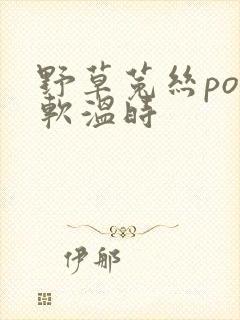 野草菟絲po
軟溫時
伊那